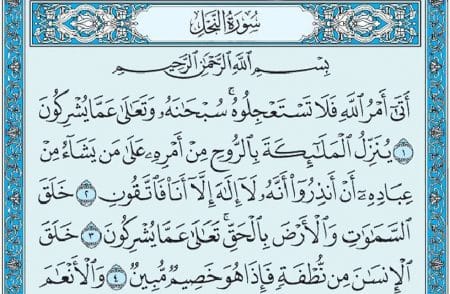 سُورَةُ النَّحْلِ
بِسْمِ اللَّهِ الرَّحْمَٰنِ الرَّحِيمِ
أَتَىٰٓ أَمْرُ ٱللَّهِ فَلَا تَسْتَعْجِلُوهُ ۚ سُبْحَٰنَهُۥ وَتَعَٰلَىٰ عَمَّا يُشْرِكُونَ
١ يُنَزِّلُ ٱلْمَلَٰٓئِكَةَ بِٱلرُّوحِ مِنْ أَمْرِهِۦ عَلَىٰ مَن يَشَآءُ مِنْ
عِبَادِهِۦٓ أَنْ أَنذِرُوٓا۟ أَنَّهُۥ لَآ إِلَٰهَ إِلَّآ أَنَا۠ فَٱتَّقُونِ ٢ خَلَقَ
ٱلسَّمَٰوَٰتِ وَٱلْأَرْضَ بِٱلْحَقِّ ۚ تَعَٰلَىٰ عَمَّا يُشْرِكُونَ ٣ خَلَقَ
ٱلْإِنسَٰنَ مِن نُّطْفَةٍ فَإِذَا هُوَ خَصِيمٌ مُّبِينٌ ٤ وَٱلْأَنْعَٰمَ